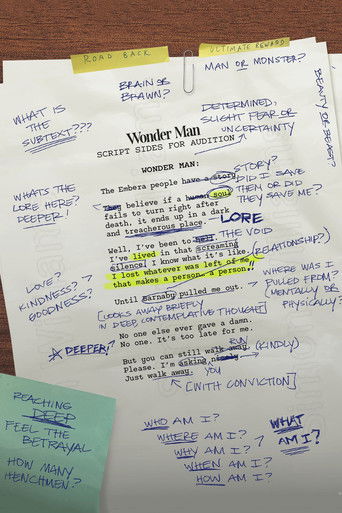 ROAD BACK
ULTIMATE REWARD
MAN OR MONSTER?
BRAIN OR
BRAWN?
BEAUTY OR BEAST?
WHAT IS
THE
SUBTEXT???
DETERMINED,
SLIGHT FEAR OR
UNCERTAINTY
Wonder Man
SCRIPT SIDES FOR AUDITION
WONDER MAN:
STORY?
The Embera people have a story.
DID I SAVE
They believe if a human soul
THEM OR DID
THEY SAVE ME?
fails to turn right after
death, it ends up in a dark
and treacherous place.
LORE
WHATS THE
LORE HERE?
DEEPER!
Well, I've been to hell
THE VOID
I've lived in that screaming
silence. I know what it's like.
(RELATIONSHIP?)
I lost whatever was left of me
that makes a person a person.
LOVE?
KINDNESS?
GOODNESS?
WHERE WAS I
PULLED FROM?
(MENTALLY OR
PHYSICALLY?)
Until Barnaby pulled me out.
[LOOKS AWAY BRIEFLY
IN DEEP, CONTEMPLATIVE THOUGHT]
No one else ever gave a damn.
No one. It's too late for me.
DEEPER!
RUN
But you can still walk away.
Please. I'm asking nicely
(KINDLY)
Just walk away.
YOU
[WITH CONVICTION]
REACHING
DEEP
FEEL THE
BETRAYAL
HOW MANY
HENCHMEN?
WHO AM I?
WHERE AM I?
WHY AM I?
WHEN AM I?
HOW AM I?
WHAT
AM I?